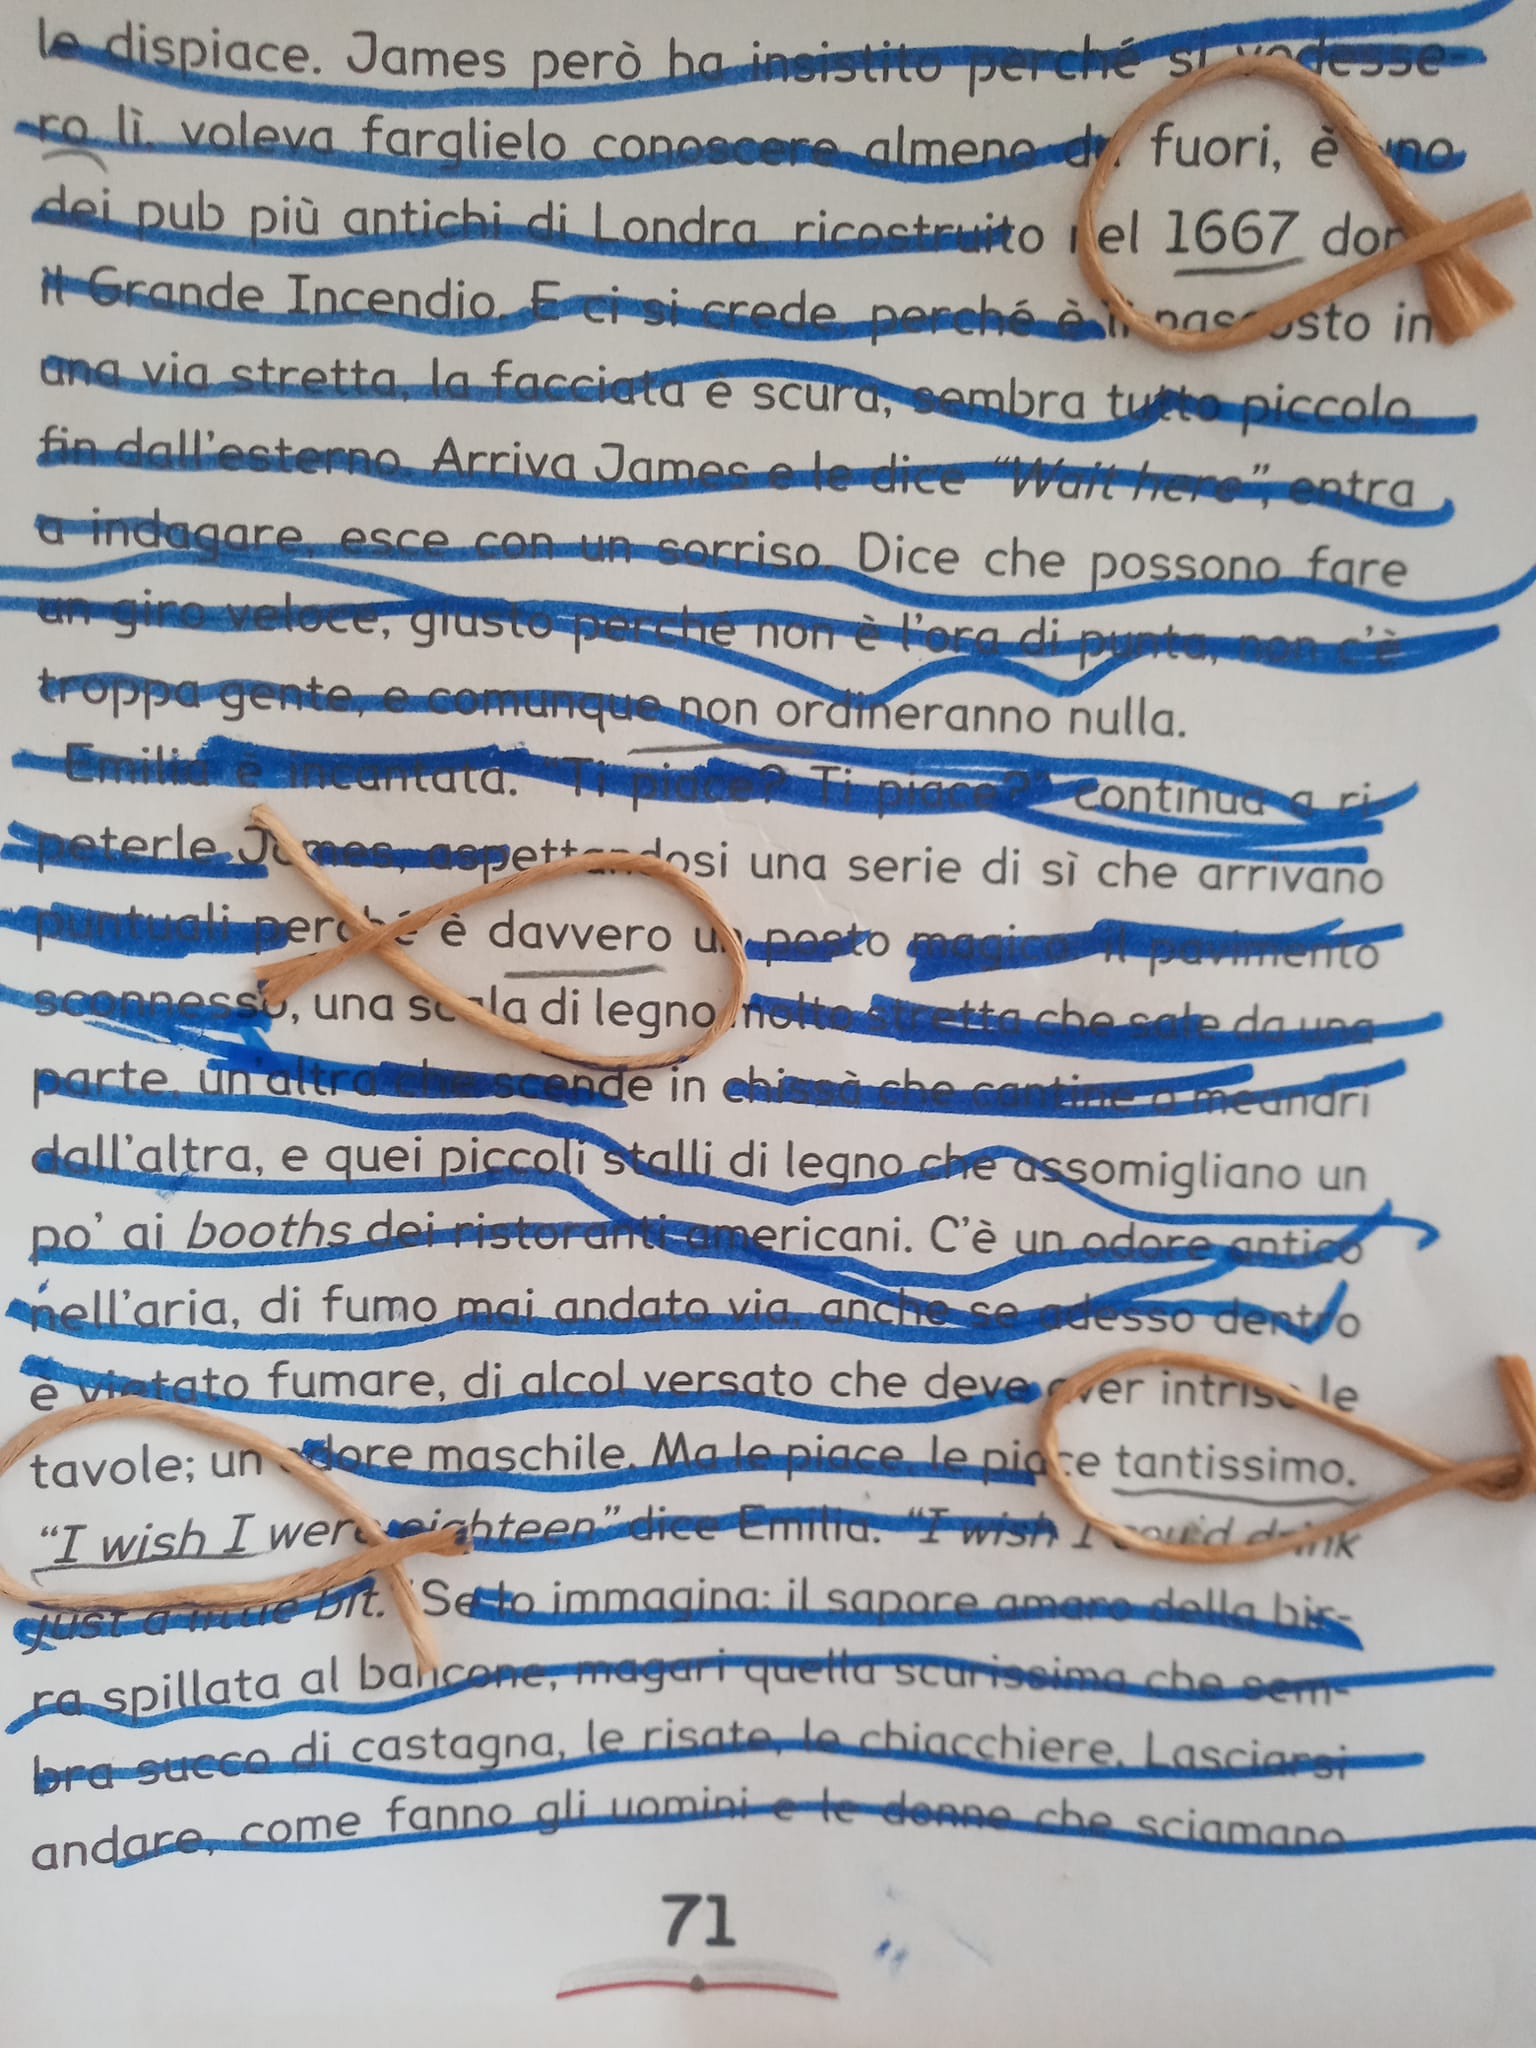 le dispiace. James però ha insistito perché si vedesse-
ro lì, voleva farglielo conoscere almeno da fuori, è uno
dei pub più antichi di Londra, ricostruito nel 1667 don
il Grande Incendio. E ci si crede, perché è lì nascosto in
una via stretta, la facciata è scura, sembra tutto piccolo
fin dall'esterno. Arriva James e le dice “Wait here”, entra
a indagare, esce con un sorriso. Dice che possono fare
un giro veloce, giusto perché non è l'ora di punta, non c'è
troppa gente, e comunque non ordineranno nulla.
Emilia è incantata. “Ti piace? Ti piace?” continua a ri
peterle James, aspettandosi una serie di sì che arrivano
puntuali perché è davvero un posto magico: il pavimento
sconnesso, una scala di legno molto stretta che sale da una
parte, un'altra che scende in chissà che cantine o meandri
dall'altra, e quei piccoli stalli di legno che assomigliano un
po' ai booths dei ristoranti americani. C'è un odore antico
nell'aria, di fumo mai andato via, anche se adesso dentro
è vietato fumare, di alcol versato che deve aver intriso le
tavole; un odore maschile. Ma le piace, le piace tantissimo.
“I wish I were eighteen” dice Emilia. “I wish I could drink
just a little bit.” Se lo immagina: il sapore amaro della bir-
ra spillata al bancone, magari quella scurissima che sem-
bra succo di castagna, le risate, le chiacchiere. Lasciarsi
andare, come fanno gli uomini e le donne che sciamano
71